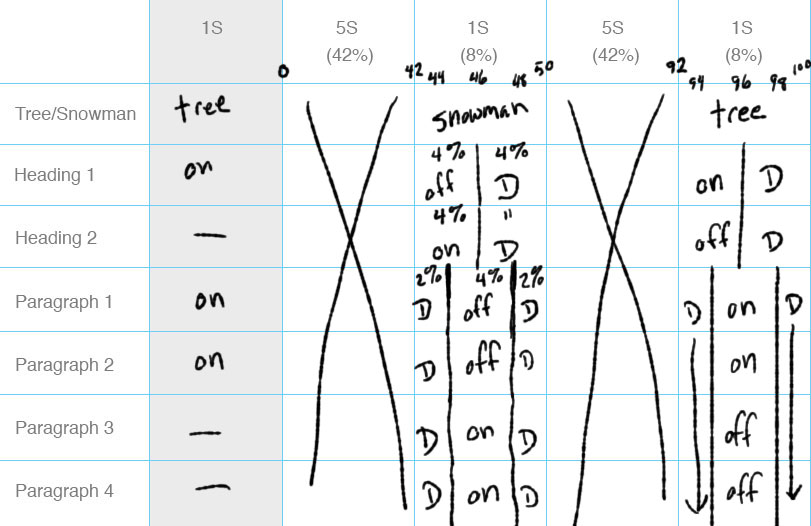 1S 5S 1S 5S 1S
(42%) (8%) (42%) (8%)
0 42 44 46 48 50 92 94 96 98 100
Tree/Snowman tree snowman tree
4% 4%
Heading 1 on off D on D
4% "
Heading 2 — on D off D
2% 4% 2%
Paragraph 1 on D off D D on D
Paragraph 2 on D off D on
Paragraph 3 — D on D off
Paragraph 4 — D on D off